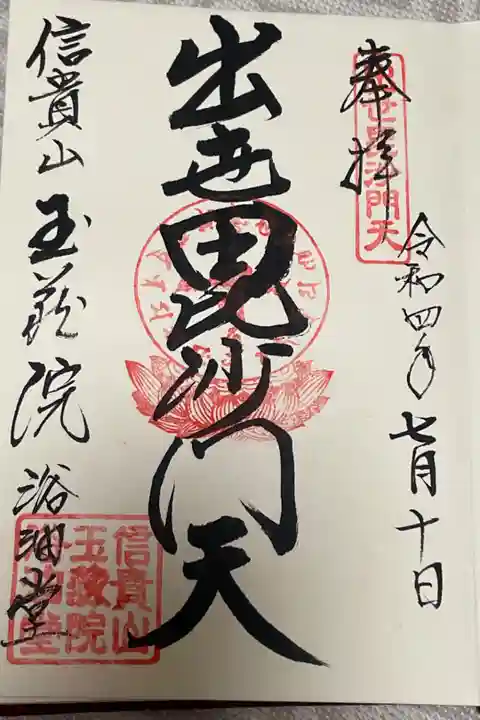 奉拝
出世毘沙門天
令和四年七月十日
出世毘沙門天
信貴山玉蔵院浴油堂
信貴山
玉蔵院
浴油堂